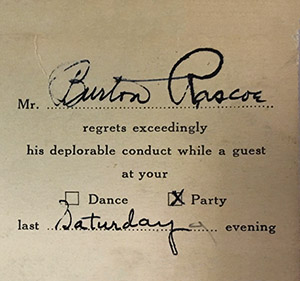 Mr. Burton Rascoe
regrets exceedingly
his deplorable conduct while a guest
at your
☐ Dance ☒ Party
last Saturday evening